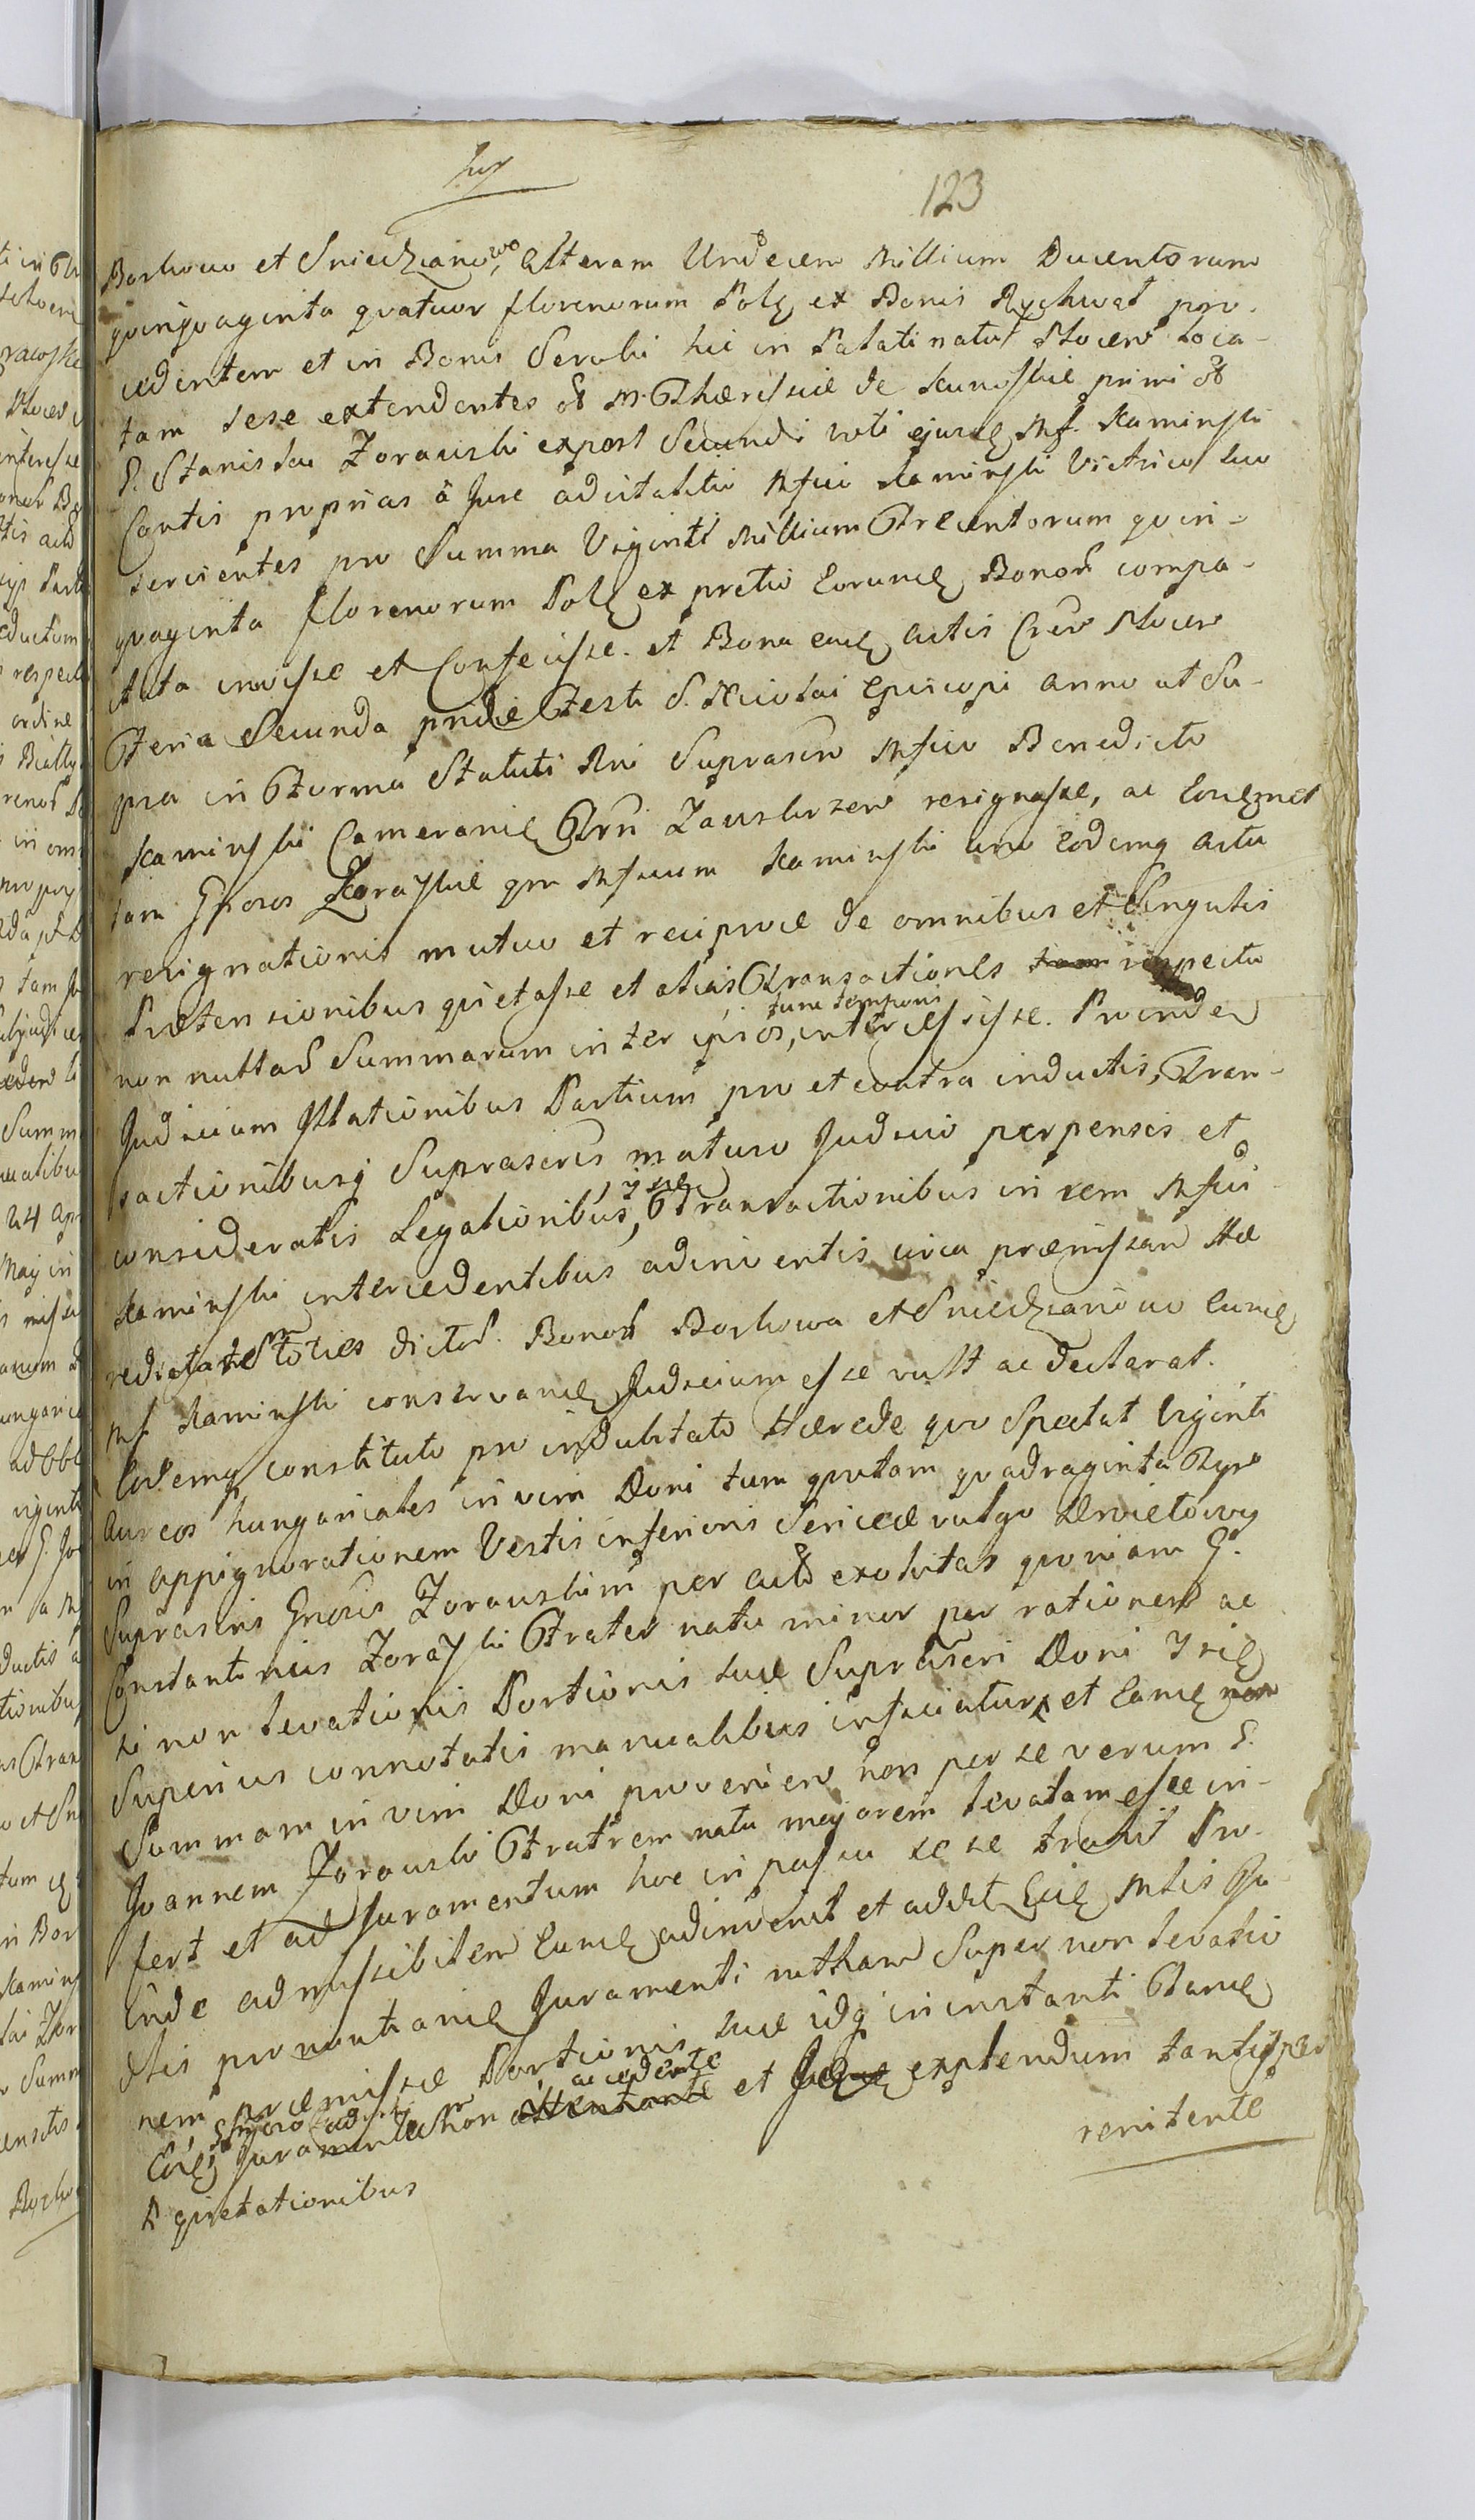 123
Borkowo et Sniedzanowo, alteram Undecem Millium Ducentorum
quinquaginta quatuor florenorum Pol ex Bonis Rychwał pro-
cedentem et in Bonis Seroki hic in Palatinatu Plocen loca-
tam sese extendentes
S. Stanislai Zorawski expost Secundi voti ejusd Mf. Kaminski
Contis proprias à Jure advitalitio Mfici Kaminski Victrico suo
servientes pro Summa Viginti Millium Trecentorum quin-
quaginta florenorum Pol ex pretio Eorund Bonor compa-
rata inivisse et Confecisse. et Bona ead actis Cren Plocen
Feria Secunda pridie Festi S. Nicolai Episcopi anno ut Su-
pra in Forma Statuti Rni Suprascr Mfico Benedicto
Kaminski resignasse, ac
tam Gnosos Zorawskie qm Mficum Kaminski uno eodemq actu
resignationis mutuo et reciproce de omnibus et Singulis
Prætensionibus quietasse et alias Transactiones respectu
non nullar Summarum inter ipsos, tunc temporis intercessisse. Proinde
Judicium Illationibus Partium pro et contra inductis, Tran-
sactionibusq Suprascris maturo Judicio perpensis et
consideratis Legationibus, Transactionibus in rem Mfici
Kaminski intercedentibus adinventis circa præmissam Hæ
reditatem toties dictor. Bonor Borkowa et Sniedzanowo Eund
Mf. Kaminski conservand Judicium esse vult ac declarat.
Eodemq constituto pro indubitato Hærede quo Spectat Viginti
Aureos hungaricales in vim Doni tum quotam quadraginta
in appignorationem Vestis inferioris Sericeæ vulgo
Suprascris Gnosis Zorawskim per exolutas quoniam G.
Constantinus Zorawski Frater natu minor per rationem ac
si non levationis Portionis suæ Suprascri Doni
Superius connotatis manualibus inficiatur et Eand
Summam in vim Doni provenien non per se verum G.
Joannem Zorawski Fratrem natu majorem levatam esse in-
fert et ad Juramentum hoc in passu sese trahit Pro-
inde admissibilem Eund adinvenit et addit
pronuntiand Juramenti rotham Super non levatio
nem præmissæ Portionis suæ idq in instanti
Juramento non accedente et explendum tantisper
renitente
quietationibus